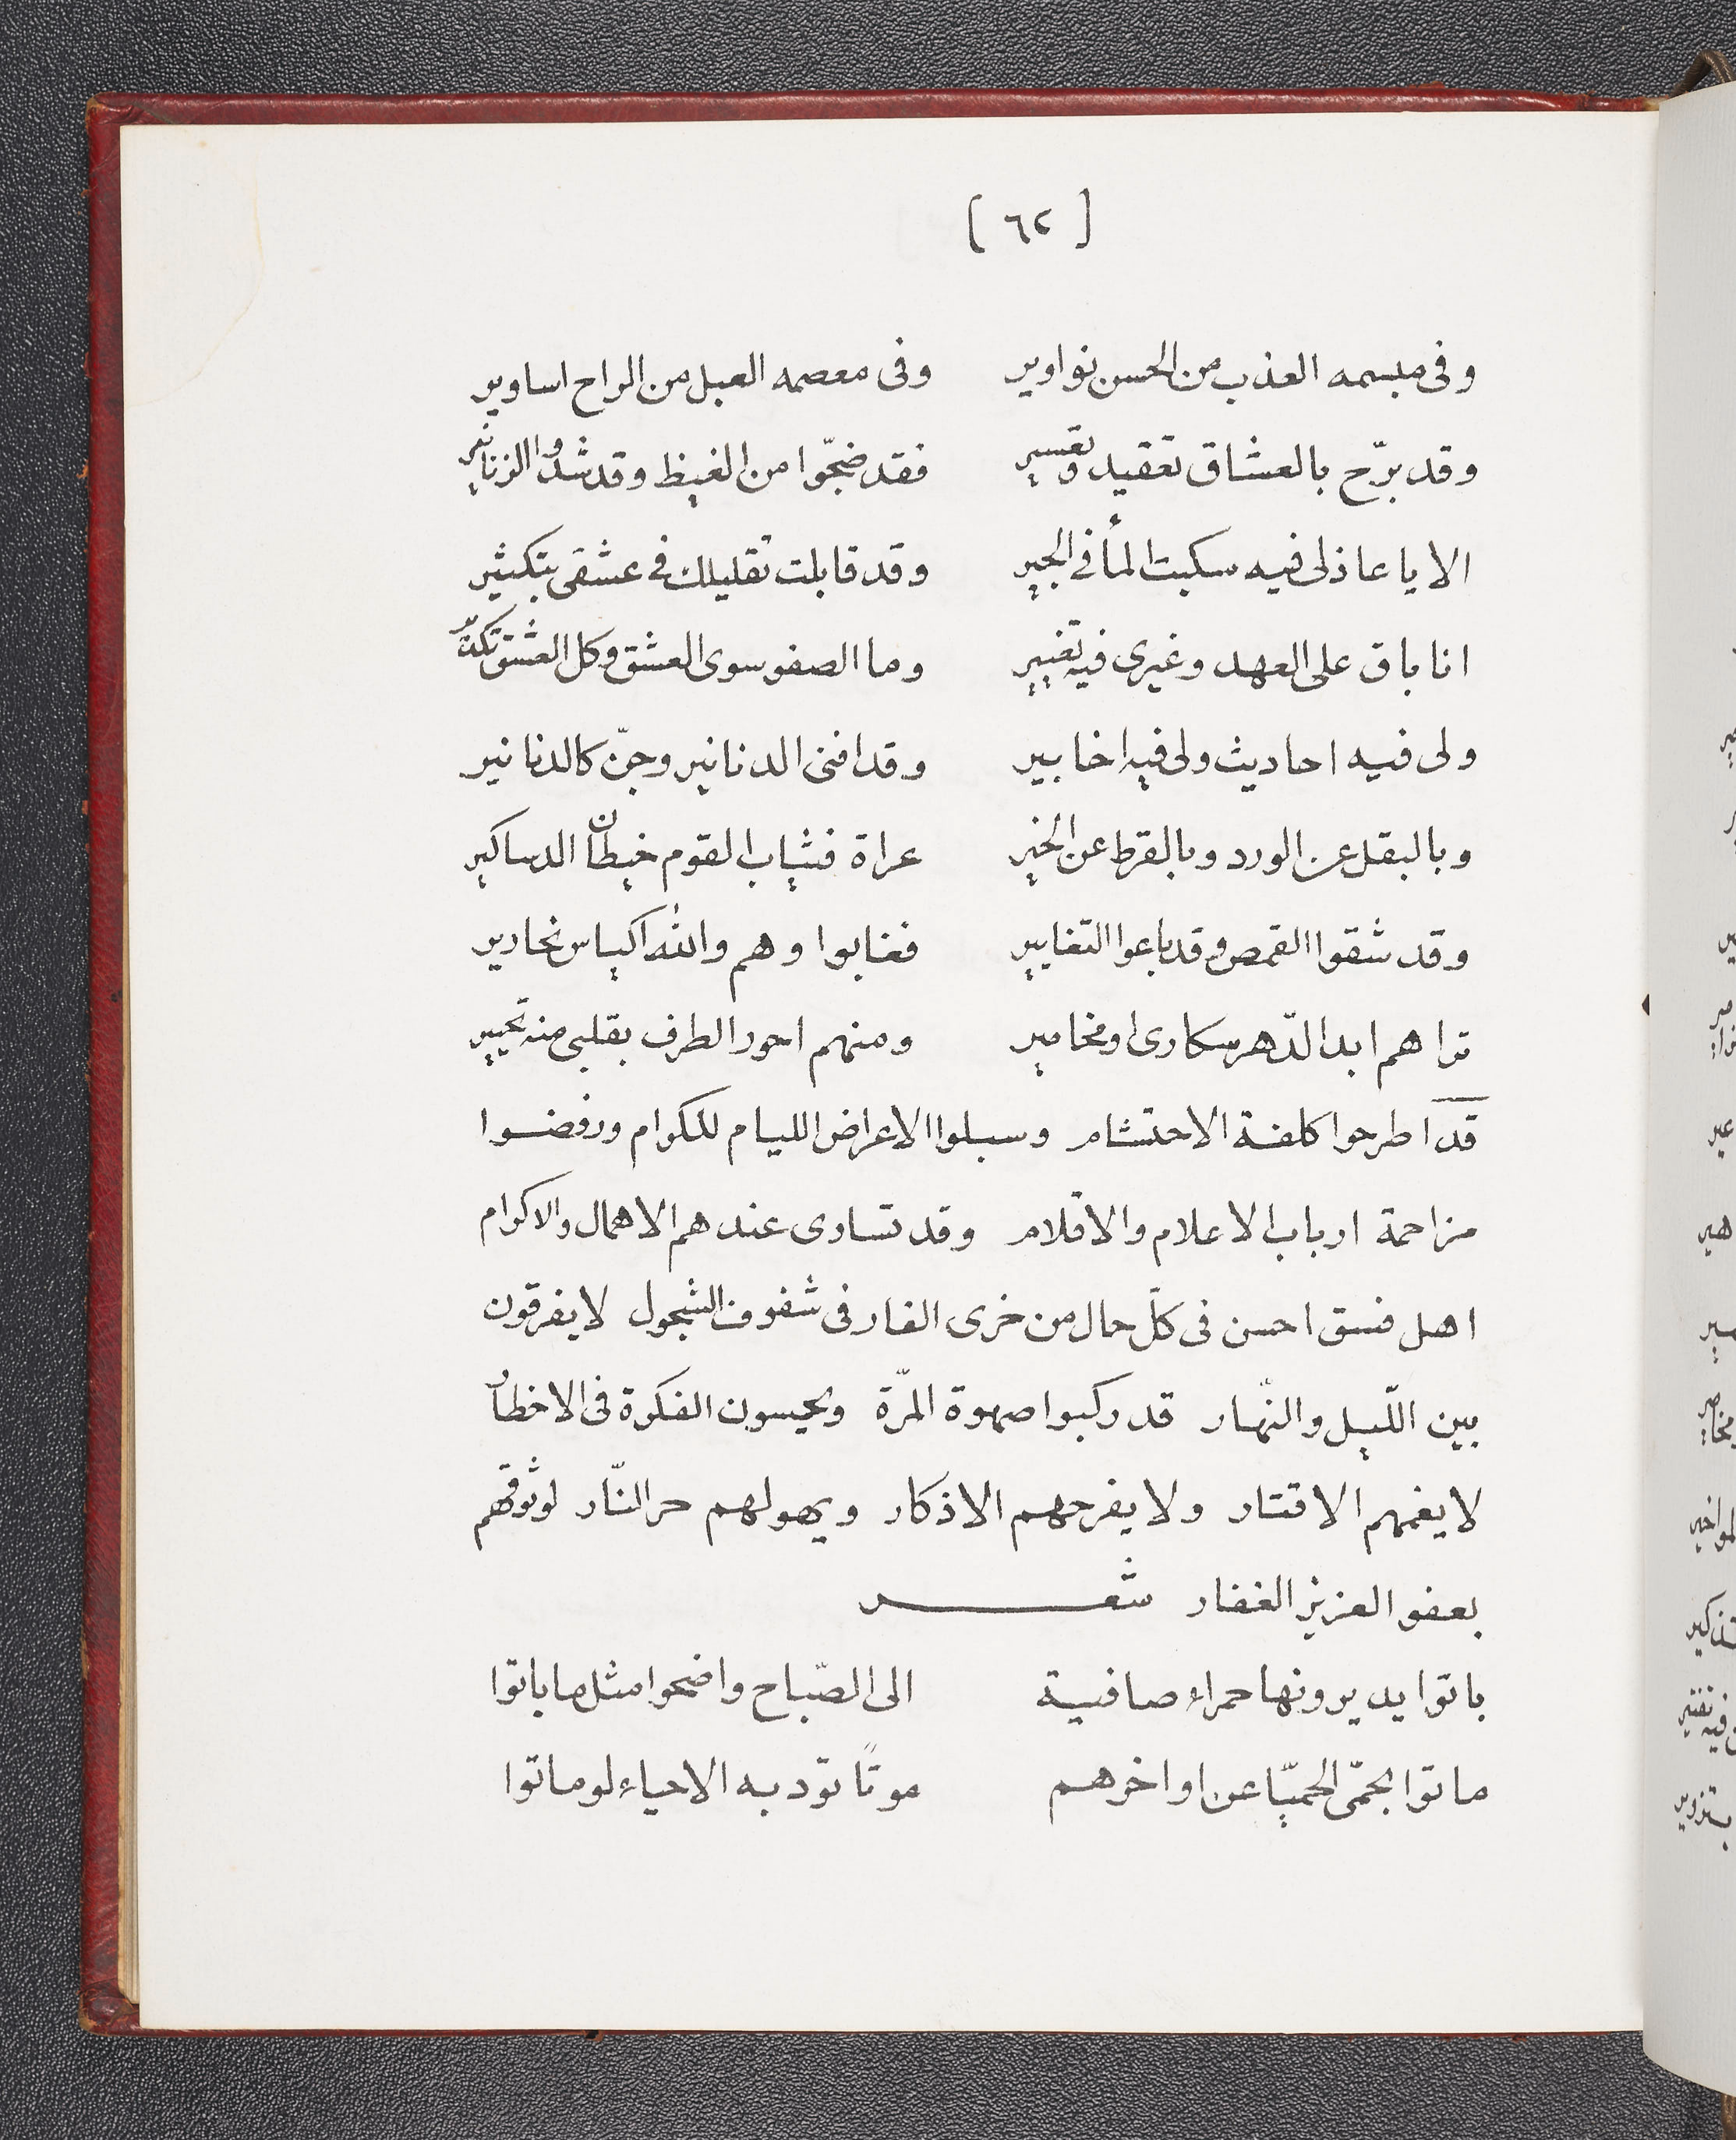 [ ٦٢ ]
وفى مبسمه العذب من الحسن نواوير وفى معصمه العبل من الراح اساوير
وقد برّح بالعشاق تعقيد وتعسير فقد ضجّوا من الغيظ وقد شدوا الزنانير
الا يا عاذلى فيه سكبت المأ فى الجير وقد قابلت تقليلك فى عشقى بتكثير
انا باق على العهد وغيرى فيه تغيير وما الصفو سوى العشق وكل العشق
ولى فيه احاديث ولى فيه اخابير وقد افنى الدنانير وجنّ كالدنانير
وبالبقل عن الورد وبالقرط عن الخير عراة فثياب القوم خيطان الدساكير
وقد شقوا القمص وقد باعوا التغايير فغابوا وهم والله اكياس نحارير
تراهم ابد الدّهر سكارى او مخامير ومنهم احور الطرف بقلبى منه تحيير
قد اطرحوا كلفة الاحتشام وسبلوا الاعراض الليام للكرام ورفضوا
مزاحمة ارباب الاعلام والاقلام وقد تساوى عندهم الاهمال والاكرام
اهل فسق احسن فى كلّ حال من خرى الفار فى شفوف الشجول لا يفرقون
بين اللّيل والنّهار قد ركبوا صهوة المرّة ويحبسون الفكرة فى الاخطار
لا يغمهم الاقتار ولا يفرحهم الاذكار ويهولهم حر النّار لوثوقهم
بعفو العزيز الغفار شعر
باتوا يديرونها حمراء صافية الى الصّباح واضحوا مثل ما باتوا
ماتوا بحمّى الحميّا عن اواخرهم موتًا تود به الاحياء لو ماتوا